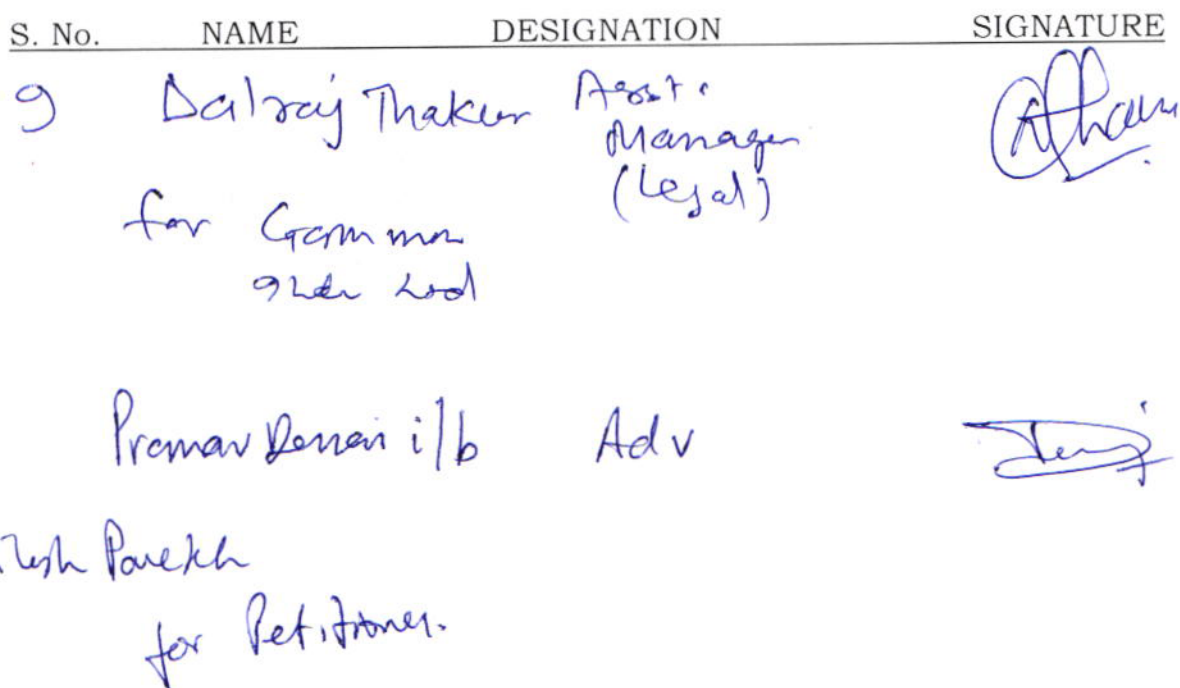 S. No. NAME DESIGNATION SIGNATURE
9 Dalraj Thakur Asst.
Manager
(Legal)
for Gammon
Ltd
Pranav Desai i/b Adv
Parekh
for Petitioner.